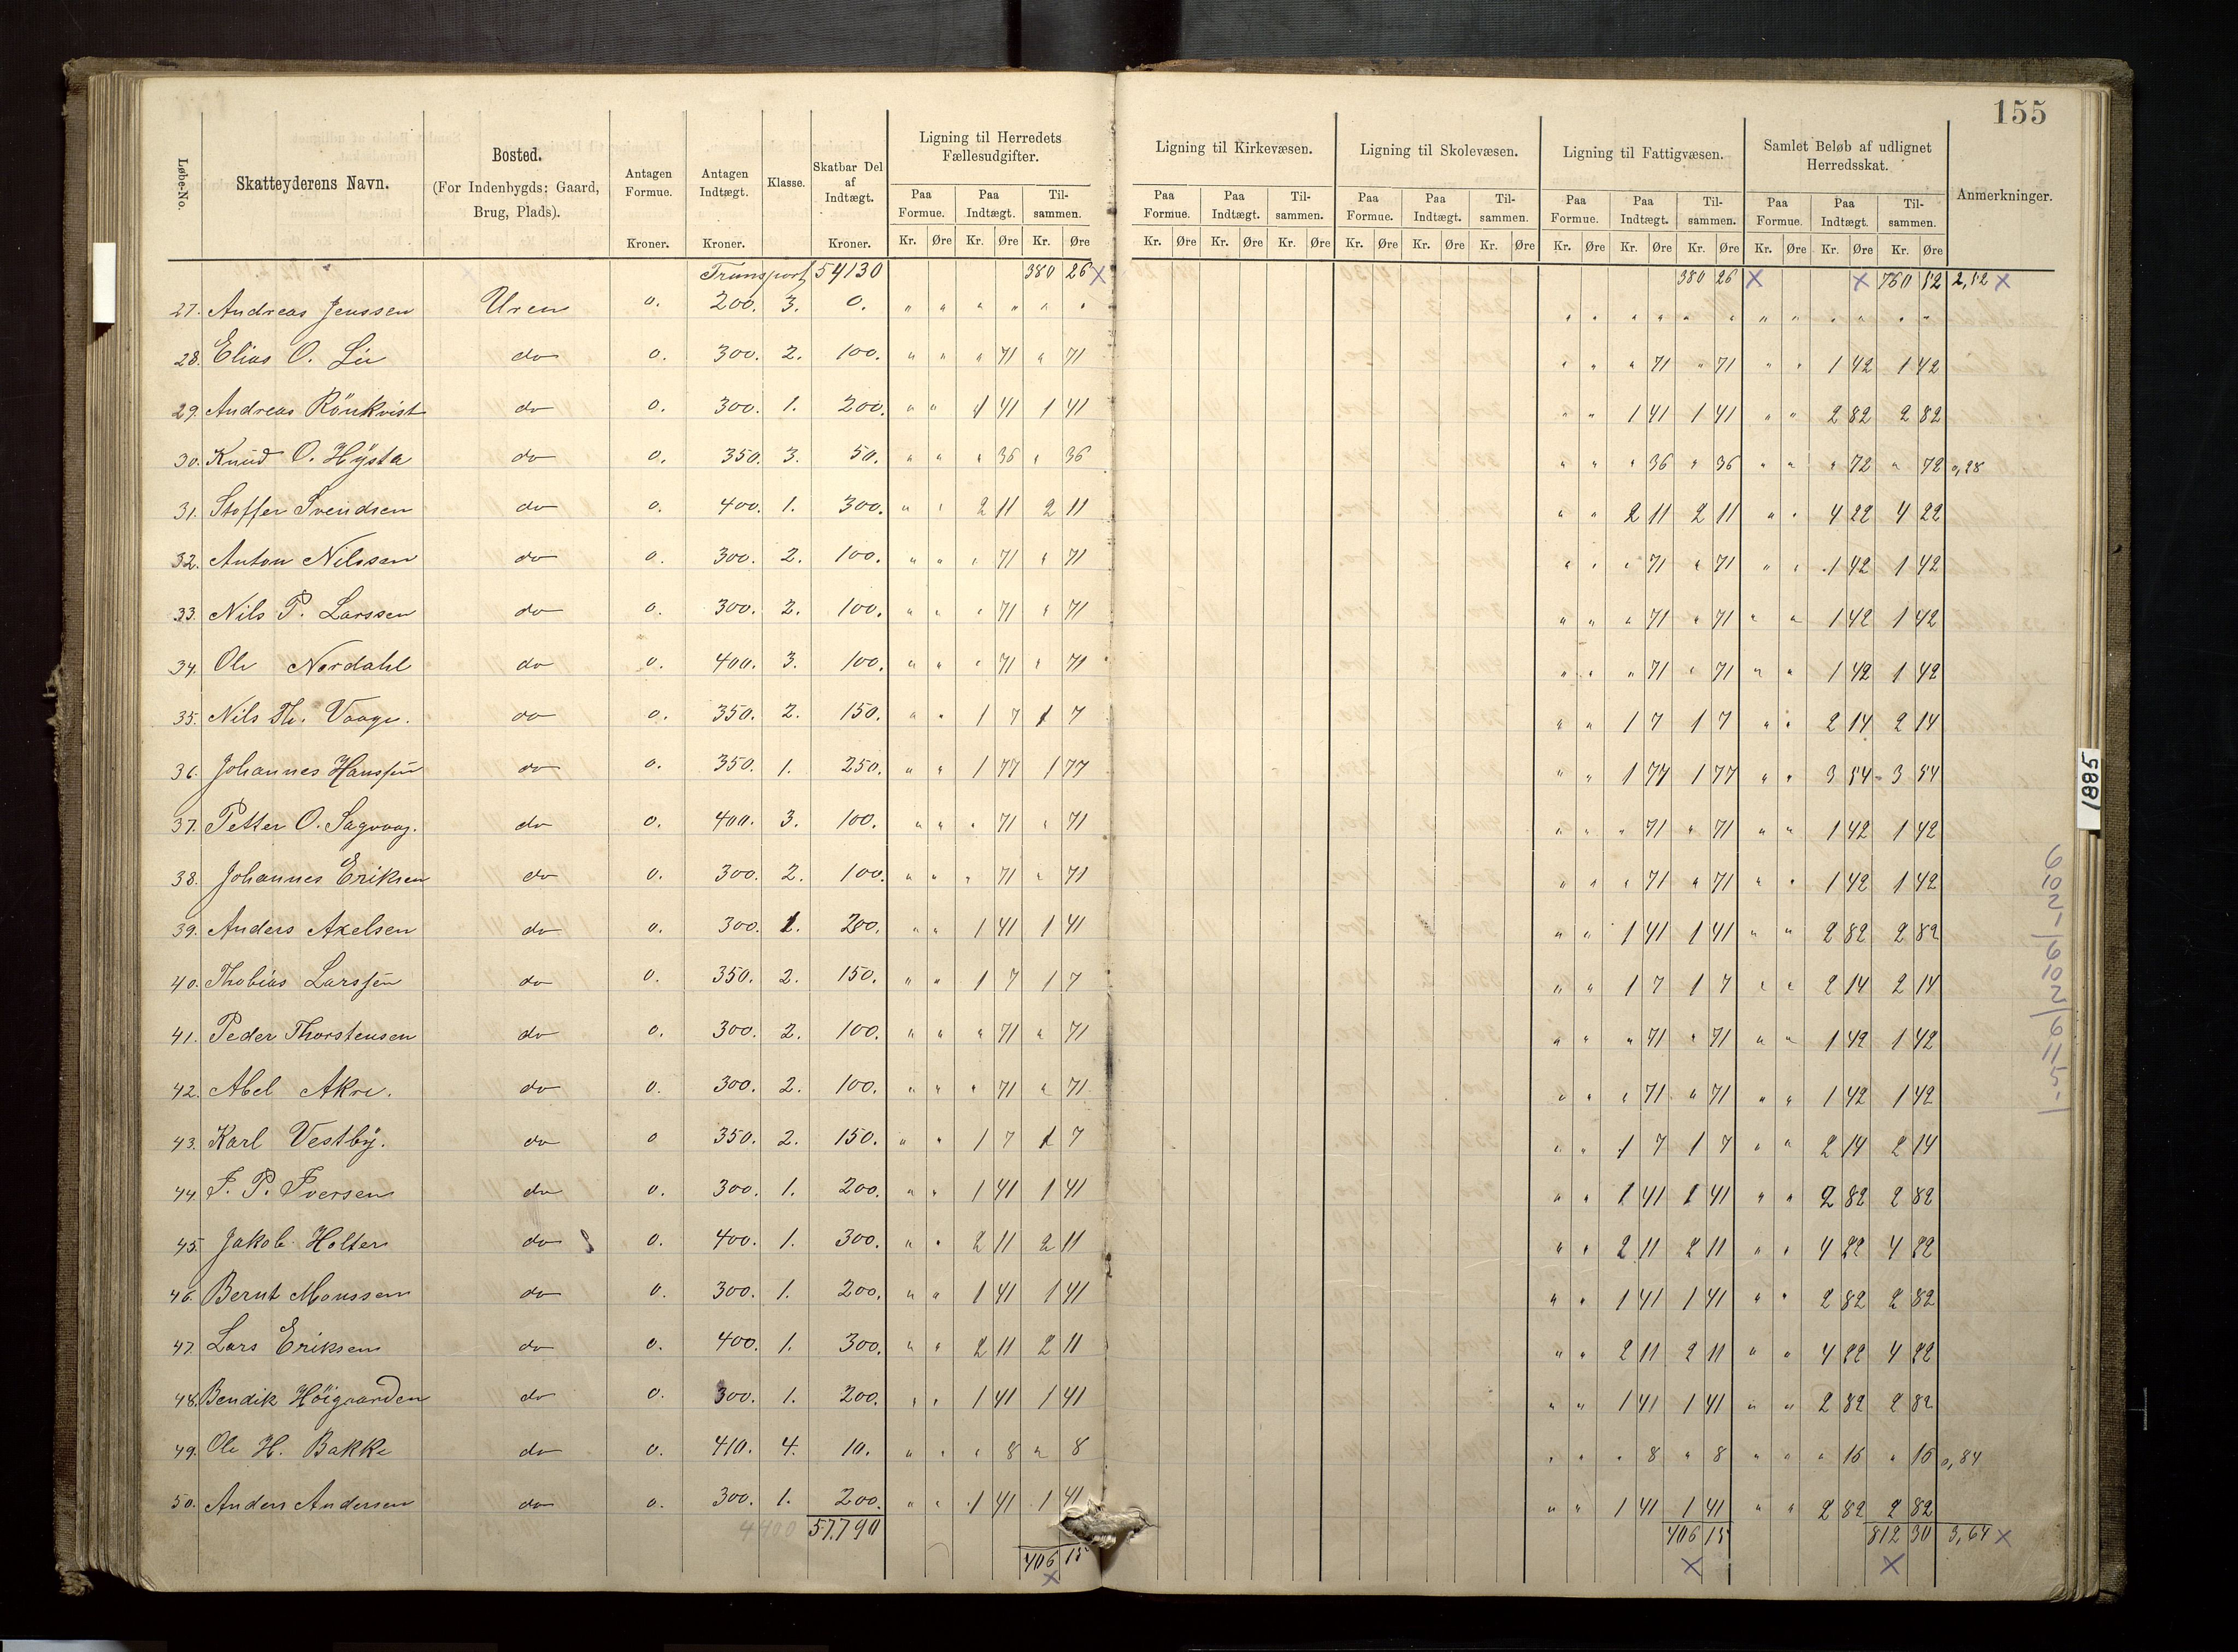 155
Løbe-No. Skatteyderens Navn. Bosted. (For Indenbygds: Gaard, Brug, Plads). Antagen Formue. Antagen Indtægt. Klasse. Skatbar Del af Indtægt. Ligning til Herredets Fællesudgifter. Ligning til Kirkevæsen. Ligning til Skolevæsen. Ligning til Fattigvæsen. Samlet Beløb af udlignet Herredsskat. Anmerkninger.
Paa Formue. Paa Indtægt. Tilsammen. Paa Formue. Paa Indtægt. Tilsammen. Paa Formue. Paa Indtægt. Tilsammen. Paa Formue. Paa Indtægt. Tilsammen. Paa Formue. Paa Indtægt. Tilsammen.
Kroner. Kroner. Kroner. Kr. Øre Kr. Øre Kr. Øre Kr. Øre Kr. Øre Kr. Øre Kr. Øre Kr. Øre Kr. Øre Kr. Øre Kr. Øre Kr. Øre Kr. Øre Kr. Øre Kr. Øre
Transport 54130 380 26 X 380 26 X X 760 52 2,52 X
27. Andreas Jenssen Uren 0. 200. 3. 0. " " " " " " " " " " " " " " " " " "
28. Elias O. Lie do 0. 300. 2. 100. " " " 71 " 71 " " " 71 " 71 " " 1 42 1 42
29. Andreas Rönkvist do 0. 300. 1. 200. " " 1 41 1 41 " " 1 41 1 41 " " 2 82 2 82
30. Knud O. Hÿsta do 0. 350. 3. 50. " " " 36 " 36 " " " 36 " 36 " " " 72 " 72 0,28
31. Stoffer Svendsen do 0. 400. 1. 300. " " 2 11 2 11 " " 2 11 2 11 " " 4 22 4 22
32. Anton Nilssen do 0. 300. 2. 100. " " " 71 " 71 " " " 71 " 71 " " 1 42 1 42
33. Nils P. Larssen do 0. 300. 2. 100. " " " 71 " 71 " " " 71 " 71 " " 1 42 1 42
34. Ole Nordahl do 0. 400. 3. 100. " " " 71 " 71 " " " 71 " 71 " " 1 42 1 42
35. Nils Th. Vaage. do 0. 350. 2. 150. " " 1 7 1 7 " " 1 7 1 7 " " 2 14 2 14
36. Johannes Hanssen do 0. 350. 1. 250. " " 1 77 1 77 " " 1 77 1 77 " " 3 54 3 54
37. Petter O. Sagvaag. do 0. 400. 3. 100. " " " 71 " 71 " " " 71 " 71 " " 1 42 1 42
38. Johannes Eriksen do 0. 300. 2. 100. " " " 71 " 71 " " " 71 " 71 " " 1 42 1 42
39. Anders Axelsen do 0. 300. 1. 200. " " 1 41 1 41 " " 1 41 1 41 " " 2 82 2 82
40. Thobias Larssen do 0. 350. 2. 150. " " 1 7 1 7 " " 1 7 1 7 " " 2 14 2 14
41. Peder Thorstensen do 0. 300. 2. 100. " " " 71 " 71 " " " 71 " 71 " " 1 42 1 42
42. Abel Akre. do 0. 300. 2. 100. " " " 71 " 71 " " " 71 " 71 " " 1 42 1 42
43. Karl Vestbÿ. do 0 350. 2. 150. " " 1 7 1 7 " " 1 7 1 7 " " 2 14 2 14
44. I. P. Iversen do 0. 300. 1. 200. " " 1 41 1 41 " " 1 41 1 41 " " 2 82 2 82
45. Jakob Holter do 0. 400. 1. 300. " " 2 11 2 11 " " 2 11 2 11 " " 4 22 4 22
46. Bernt Monssen do 0. 300. 1. 200. " " 1 41 1 41 " " 1 41 1 41 " " 2 82 2 82
47. Lars Eriksen do 0. 400. 1. 300. " " 2 11 2 11 " " 2 11 2 11 " " 4 22 4 22
48. Bendik Höigaarden do 0. 300. 1. 200. " " 1 41 1 41 " " 1 41 1 41 " " 2 82 2 82
49. Ole H. Bakke do 0. 410. 4. 10. " " " 8 " 8 " " " 8 " 8 " " " 16 " 16 0,84
50. Anders Andersen do 0. 300. 1. 200. " " 1 41 1 41 " " 1 41 1 41 " " 2 82 2 82
4400 57.790 406 15 X 406 15 X 812 30 X 3,64 X
1885